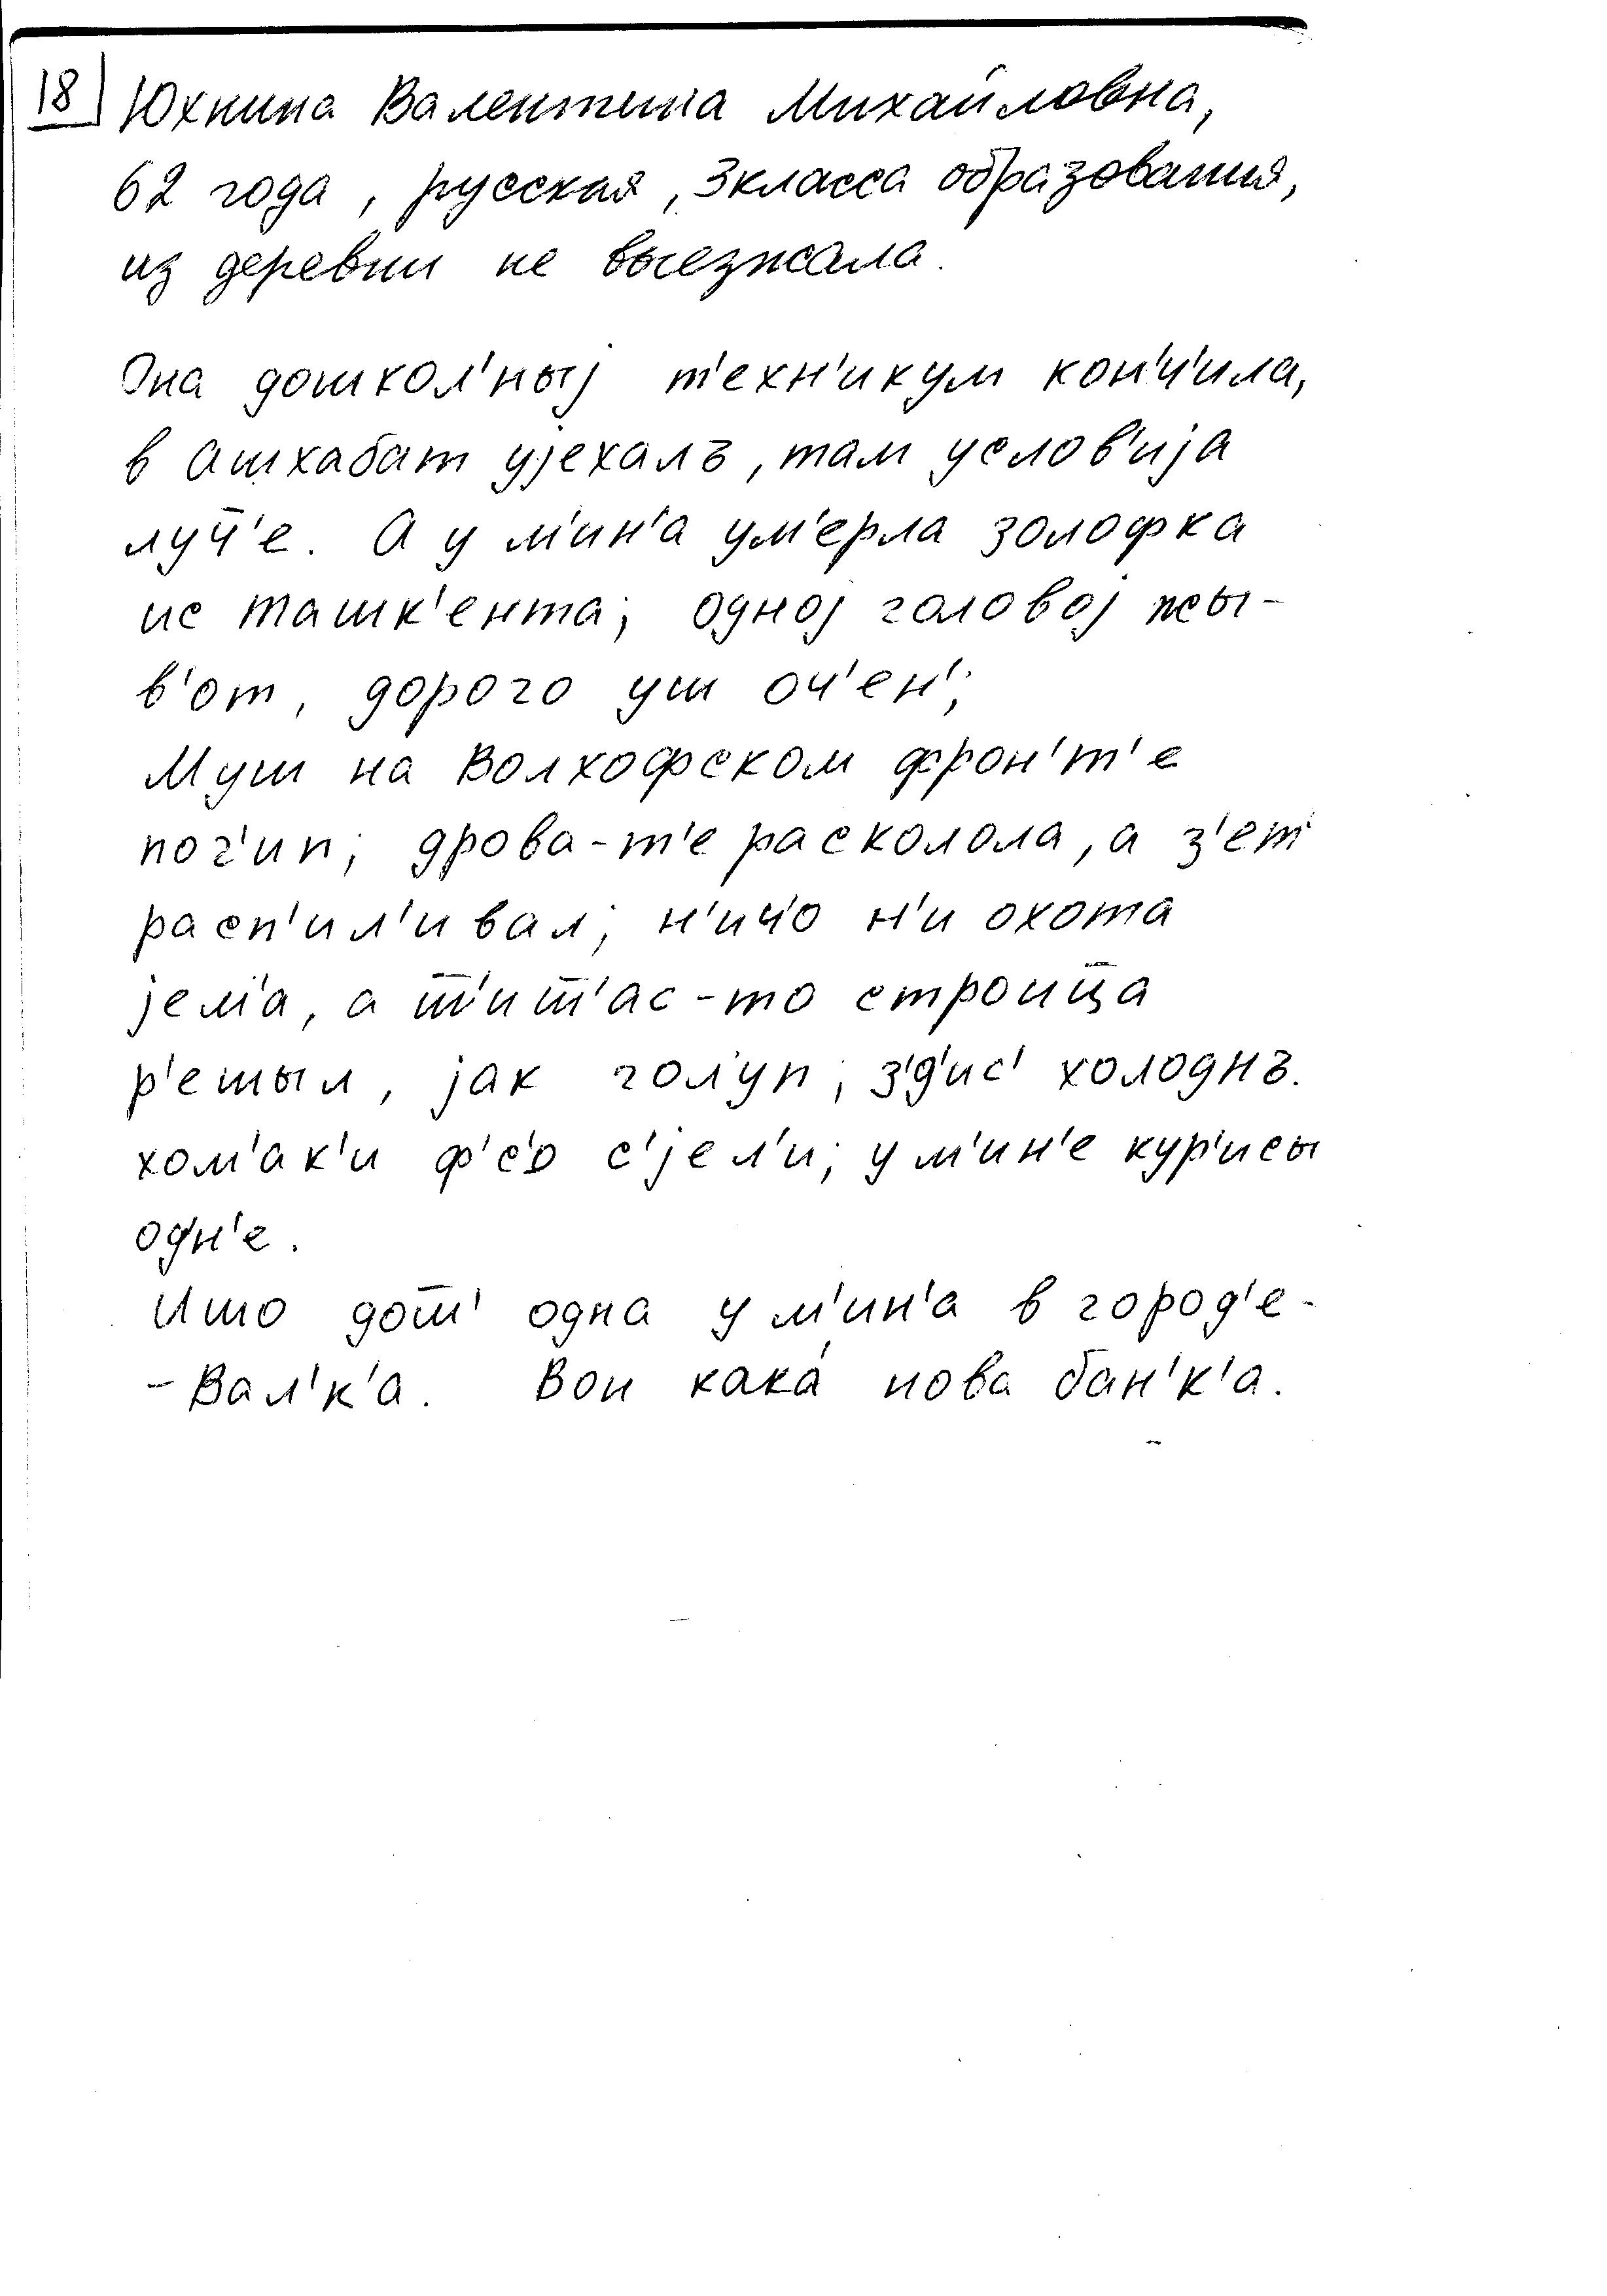 18 Юхнина Валентина Михайловна,
62 года, русская, 3 класса образования,
из деревни не выезжала.
Она дошкол'ныј т'ехн'икум кон'ч'ила,
в Ашхабат уjехалъ, там услов'иjа
луч̄'е. А у м'ин'а ум'ерла золофка
ис Ташк'ента; одноj головоj жы-
в'от, дорого уш оч'ен';
Муш на Волхофском фрон'т'е
пог'ип; дрова-т'е расколола, а з'ет'
расп'ил'ивал; н'ич'о н'и охота
jем'а, а ш̄'иш̄'ас-то строиц̄а
р'ешыл, jак гол'уп; з'д'ис' холоднъ.
хом'ак'и ф'с'о с'jел'и; у м'ин'е кур'исы
одн'е.
Ишо дош̄' одна у м'ин'а в город'е-
-Вал'к'а. Вон кака́ нова бан'к'а.